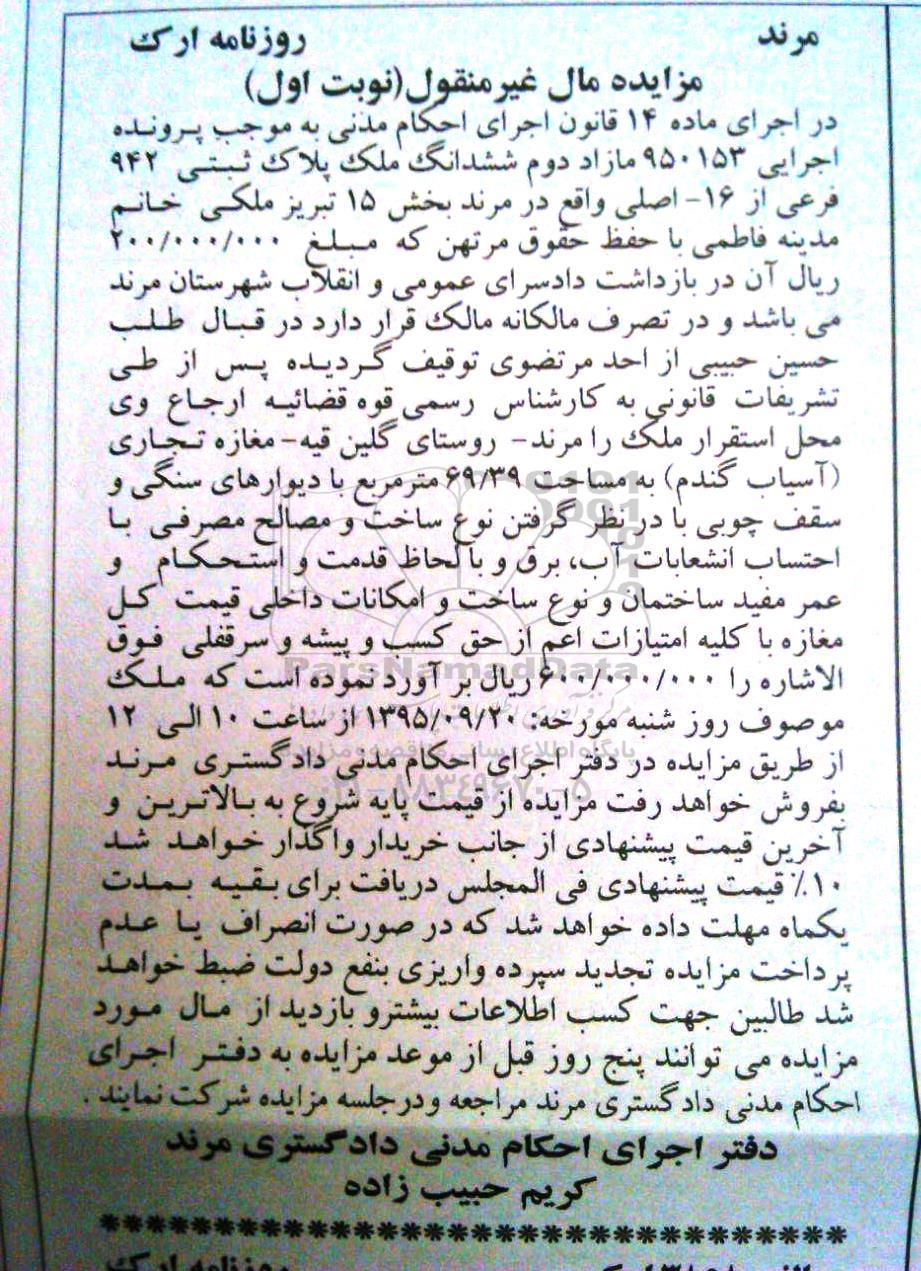 مرند روزنامه ارک
مزایده مال غیرمنقول(نوبت اول)
در اجرای ماده ۱۴ قانون اجرای احکام مدنی به موجب پرونده
اجرایی ۹۵۰۱۵۳ مازاد دوم ششدانگ ملک پلاک ثبتی ۹۴۲
فرعی از ۱۶- اصلی واقع در مرند بخش ۱۵ تبریز ملکی خانم
مدینه فاطمی با حفظ حقوق مرتهن که مبلغ ۲۰۰/۰۰۰/۰۰۰
ریال آن در بازداشت دادسرای عمومی و انقلاب شهرستان مرند
می باشد و در تصرف مالکانه مالک قرار دارد در قبال طلب
حسین حبیبی از احد مرتضوی توقیف گردیده پس از طی
تشریفات قانونی به کارشناس رسمی قوه قضائیه ارجاع وی
محل استقرار ملک را مرند- روستای گلین قیه-مغازه تجاری
(آسیاب گندم) به مساحت ۶۹/۳۹ مترمربع با دیوارهای سنگی و
سقف چوبی با در نظر گرفتن نوع ساخت و مصالح مصرفی با
احتساب انشعابات آب، برق و با لحاظ قدمت و استحکام و
عمر مفید ساختمان و نوع ساخت و امکانات داخلی قیمت کل
مغازه با کلیه امتیازات اعم از حق کسب و پیشه و سرقفلی فوق
ParsNamadData
الاشاره را ۶۰۰/۰۰۰/۰۰۰ ریال بر آورد نموده است که ملک
موصوف روز شنبه مورخه: ۱۳۹۵/۰۹/۲۰ از ساعت ۱۰ الی ۱۲
پایگاه اطلاع رسانی مناقصه و مزایده
از طریق مزایده در دفتر اجرای احکام مدنی دادگستری مرند
۰۲۱-۸۸۳۴۹۶۷۰-۵
بفروش خواهد رفت مزایده از قیمت پایه شروع به بالاترین و
آخرین قیمت پیشنهادی از جانب خریدار واگذار خواهد شد
۱۰٪ قیمت پیشنهادی فی المجلس دریافت برای بقیه بمدت
یکماه مهلت داده خواهد شد که در صورت انصراف یا عدم
پرداخت مزایده تجدید سپرده واریزی بنفع دولت ضبط خواهد
شد طالبین جهت کسب اطلاعات بیشترو بازدید از مال مورد
مزایده می توانند پنج روز قبل از موعد مزایده به دفتر اجرای
احکام مدنی دادگستری مرند مراجعه ودرجلسه مزایده شرکت نمایند .
دفتر اجرای احکام مدنی دادگستری مرند
کریم حبیب زاده
روزنامه ارک